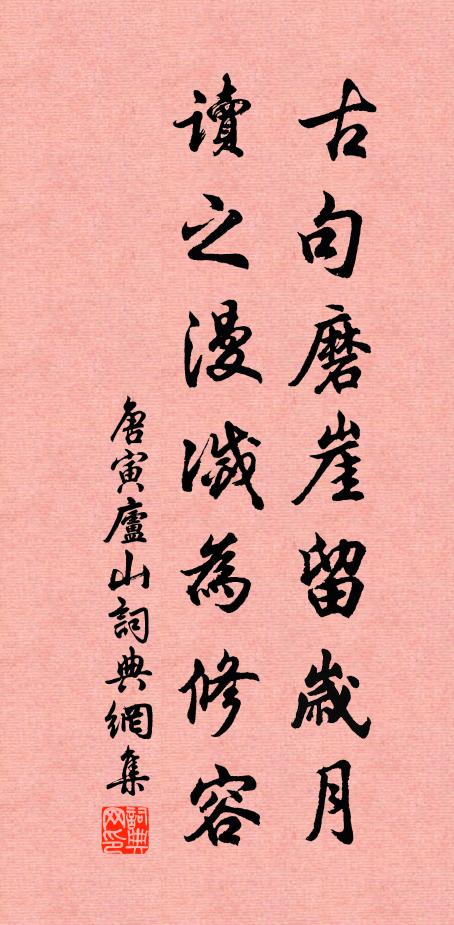 古句磨崖留歲月
讀之漫滅為修容
唐寅廬山詞典網集
詞典網印